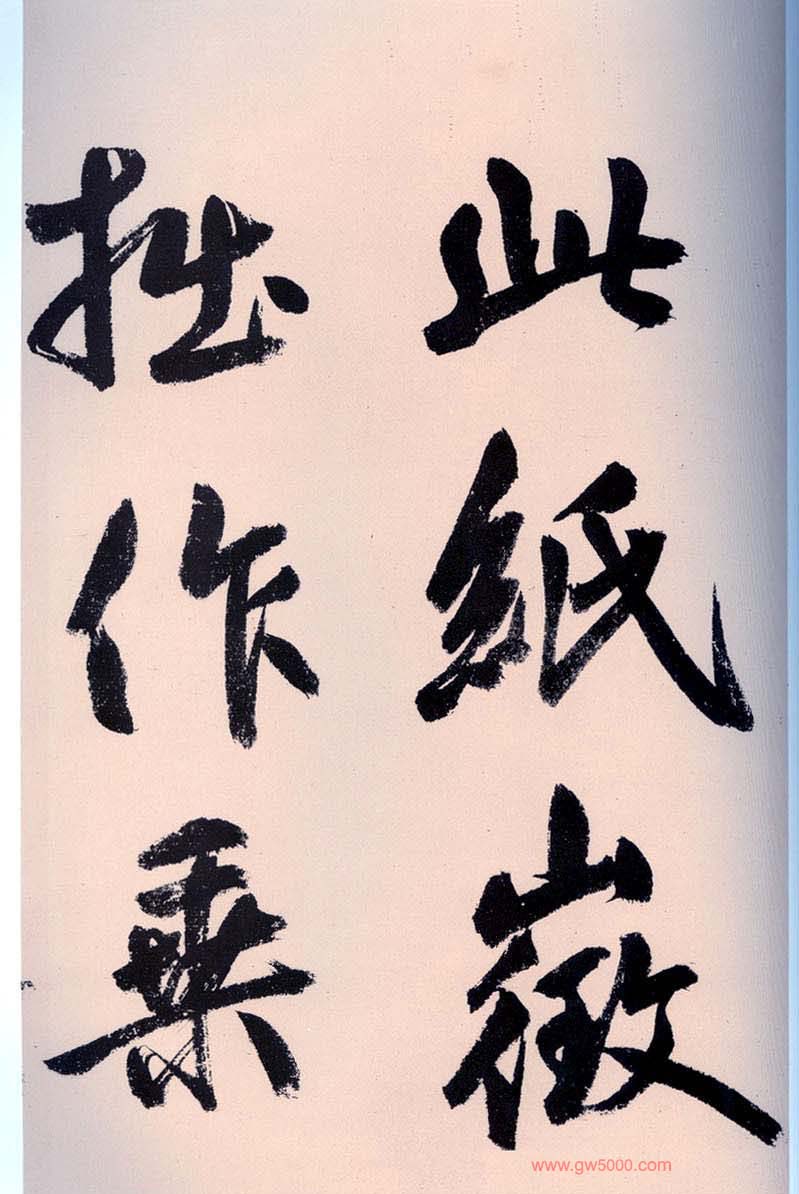 此紙徵
拙作乗
www.gw5000.com